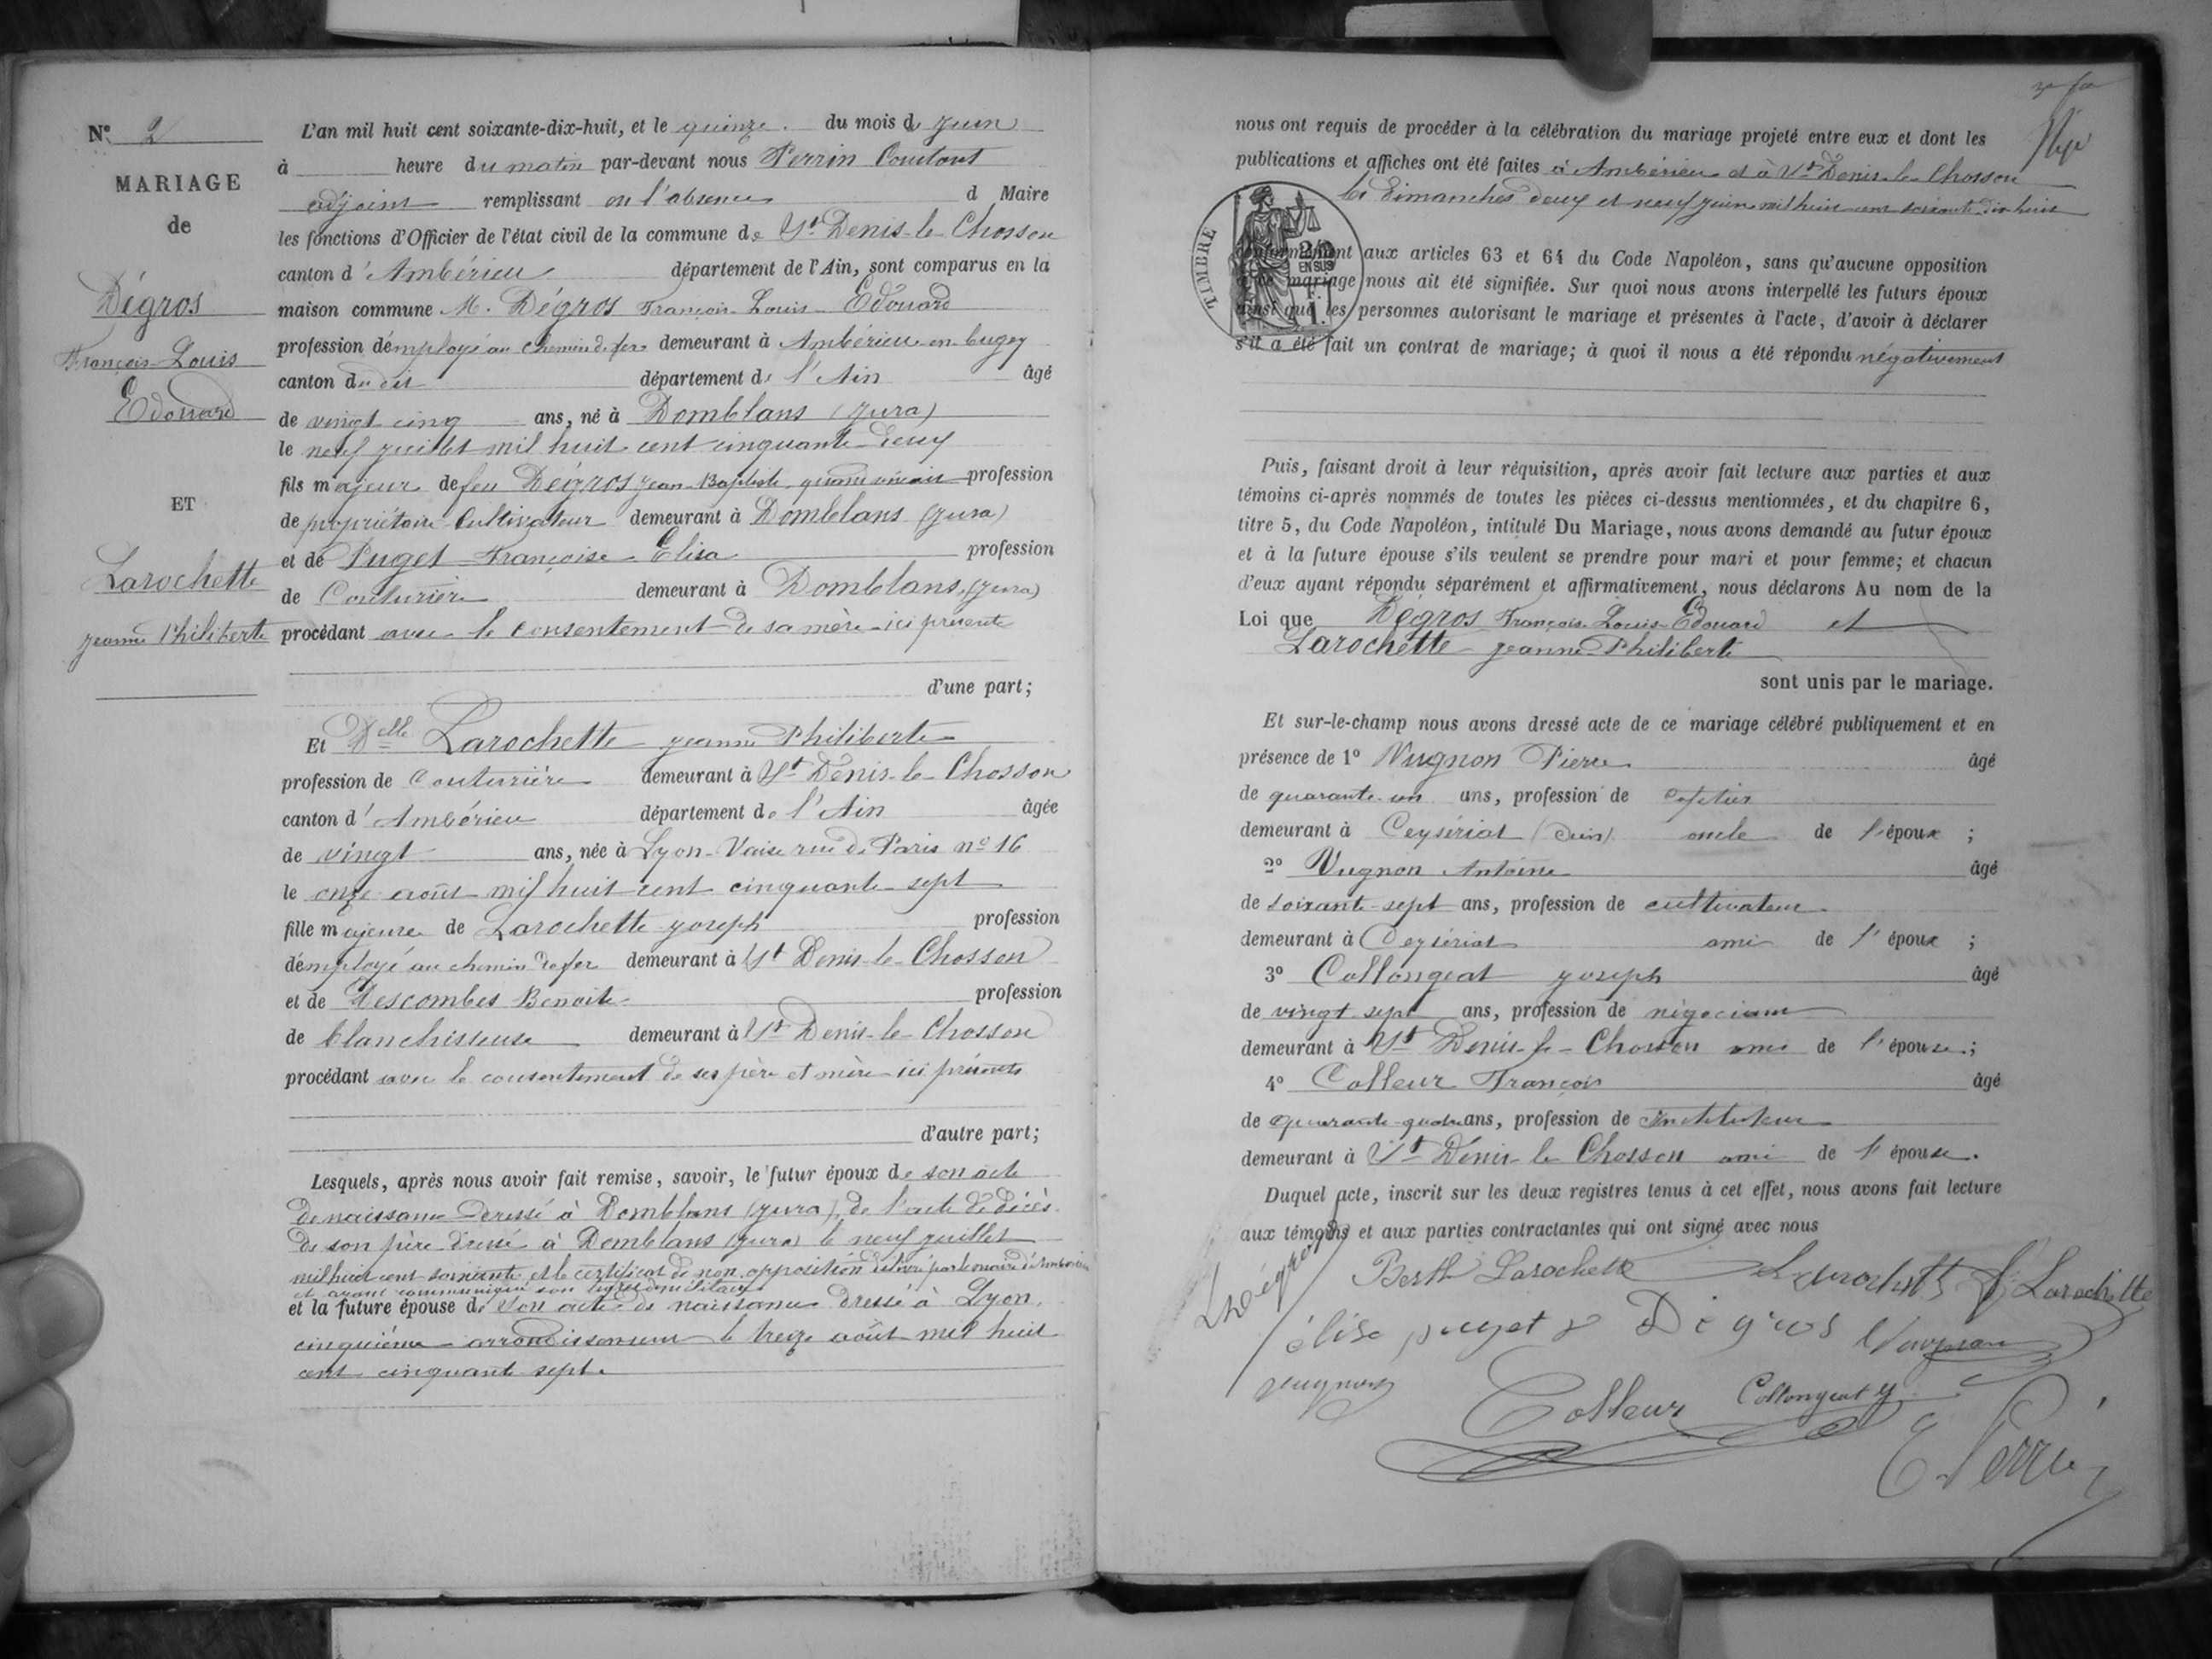 N° 2
MARIAGE
de
Dégros
François Louis
Edouard
ET
Larochette
jeanne Philiberte
L'an mil huit cent soixante-dix-huit, et le quinze du mois de juin
à heure du matin par-devant nous Perrin Constant
adjoint remplissant en l'absence d Maire
les fonctions d'Officier de l'état civil de la commune de St Denis-le-Chosson
canton d'Ambérieu département de l'Ain, sont comparus en la
maison commune M. Dégros François Louis Edouard
profession d'employé au chemin de fer demeurant à Ambérieu-en-bugey
canton du dit département de l'Ain âgé
de vingt cinq ans, né à Domblans (jura)
le neuf juillet mil huit cent cinquante deux
fils majeur de feu Dégros jean-Baptiste, quand vivait profession
de propriétaire Cultivateur demeurant à Domblans (jura)
et de Puget Françoise Elisa profession
de Couturière demeurant à Domblans (jura)
procédant avec le consentement de sa mère ici présente
d'une part;
Et Delle Larochette jeanne Philiberte
profession de Couturrière demeurant à St Denis-le-Chosson
canton d'Ambérieu département de l'Ain âgée
de vingt ans, née à Lyon-Vaise rue de Paris n° 16
le onze août mil huit cent cinquante sept
fille majeure de Larochette joseph profession
d'employé au chemin de fer demeurant à St Denis-le-Chosson
et de Descombes Benoite profession
de blanchisseuse demeurant à St Denis-le-Chosson
procédant avec le consentement de ses père et mère ici présents
d'autre part;
Lesquels, après nous avoir fait remise, savoir, le futur époux de son acte
de naissance dressé à Domblans (jura), de l'acte de décès
de son père dressé à Domblans (jura) le neuf juillet
mil huit cent soixante et le certificat de non opposition délivré par le maire d'Ambérieu
et ayant communiqué son livret militaire
et la future épouse de son acte de naissance dressé à Lyon,
cinquième arrondissement le treize août mil huit
cent cinquante sept.
nous ont requis de procéder à la célébration du mariage projeté entre eux et dont les
publications et affiches ont été faites à Ambérieu et à St Denis-le-Chosson
les dimanches deux et neuf juin mil huit cent soixante dix huit
conformément aux articles 63 et 64 du Code Napoléon, sans qu'aucune opposition
à ce mariage nous ait été signifiée. Sur quoi nous avons interpellé les futurs époux
ainsi que les personnes autorisant le mariage et présentes à l'acte, d'avoir à déclarer
s'il a été fait un contrat de mariage; à quoi il nous a été répondu négativement
TIMBRE
2/10
EN SUS
F.
1.
Puis, faisant droit à leur réquisition, après avoir fait lecture aux parties et aux
témoins ci-après nommés de toutes les pièces ci-dessus mentionnées, et du chapitre 6,
titre 5, du Code Napoléon, intitulé Du Mariage, nous avons demandé au futur époux
et à la future épouse s'ils veulent se prendre pour mari et pour femme; et chacun
d'eux ayant répondu séparément et affirmativement, nous déclarons Au nom de la
Loi que Dégros François Louis Edouard et
Larochette jeanne Philiberte
sont unis par le mariage.
Et sur-le-champ nous avons dressé acte de ce mariage célébré publiquement et en
présence de 1° Vugnon Pierre âgé
de quarante un ans, profession de cafetier
demeurant à Ceysériat (Ain) oncle de l'époux ;
2° Vugnon Antoine âgé
de soixante-sept ans, profession de cultivateur
demeurant à Ceysériat ami de l'époux ;
3° Collongeat joseph âgé
de vingt sept ans, profession de négociant
demeurant à St Denis-le-Chosson ami de l'épouse ;
4° Colleur François âgé
de quarante-quatre ans, profession de instituteur
demeurant à St Denis-le Chosson ami de l'épouse.
Duquel acte, inscrit sur les deux registres tenus à cet effet, nous avons fait lecture
aux témoins et aux parties contractantes qui ont signé avec nous
Berth Larochette Larochette J. Larochette
élise puget Dégros Vugnon
Vugnon
Colleur Collongeat J
C. Perrin